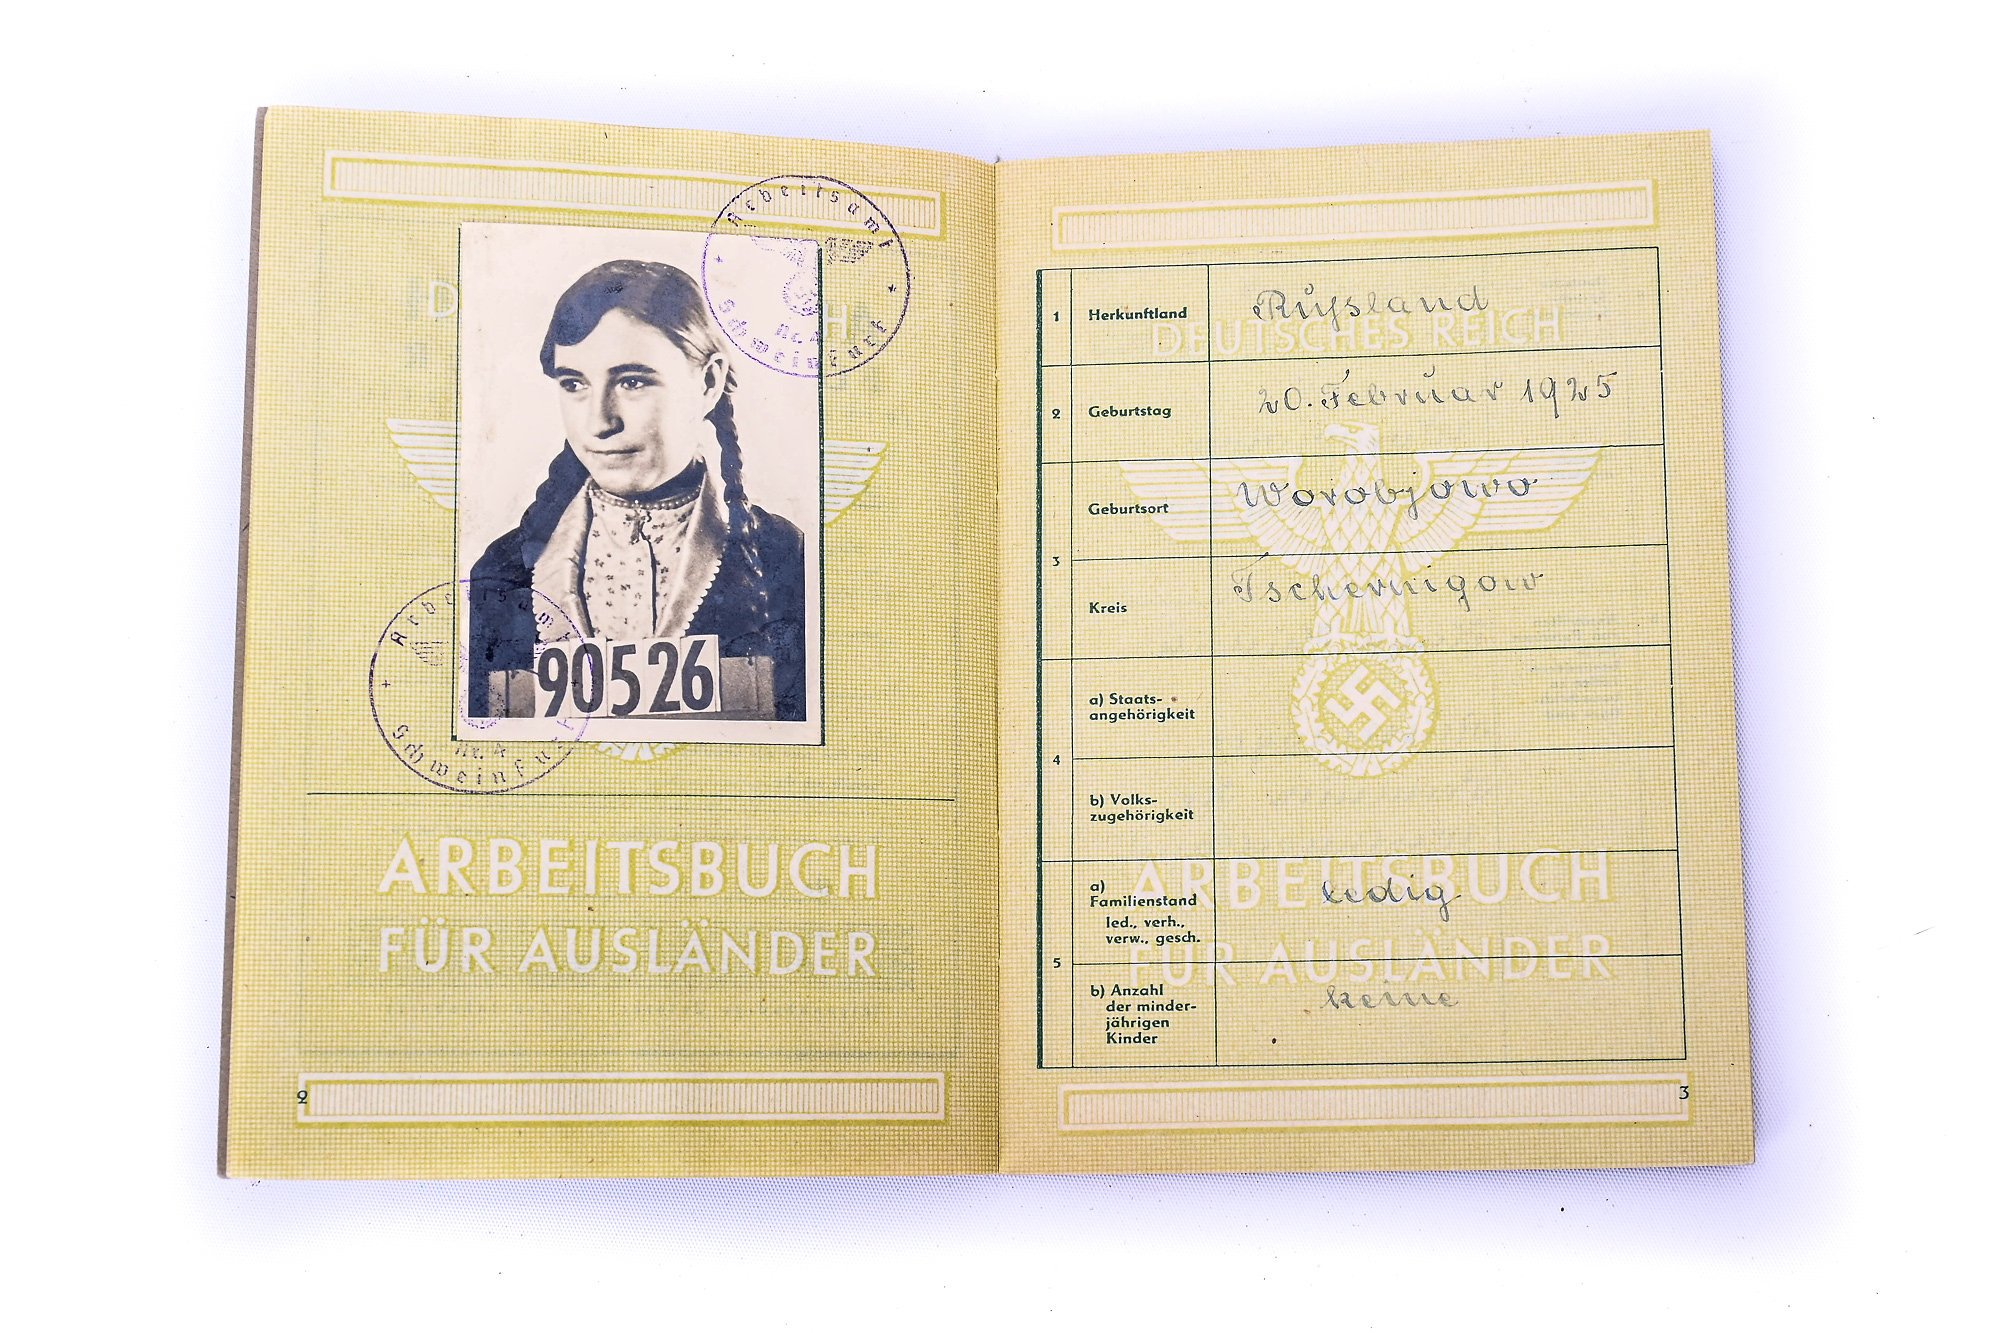 Arbeitsamt
Schweinfurt
90526
Arbeitsamt
Nr. 4
Schweinfurt
ARBEITSBUCH
FÜR AUSLÄNDER
2
DEUTSCHES REICH
1 Herkunftland Rußland
2 Geburtstag 20. Februar 1925
3 Geburtsort Worobjowo
Kreis Tschernigow
4 a) Staats-
angehörigkeit
b) Volks-
zugehörigkeit
ARBEITSBUCH
FÜR AUSLÄNDER
5 a)
Familienstand ledig
led., verh.,
verw., gesch.
b) Anzahl
der minder-
jährigen
Kinder keine
3